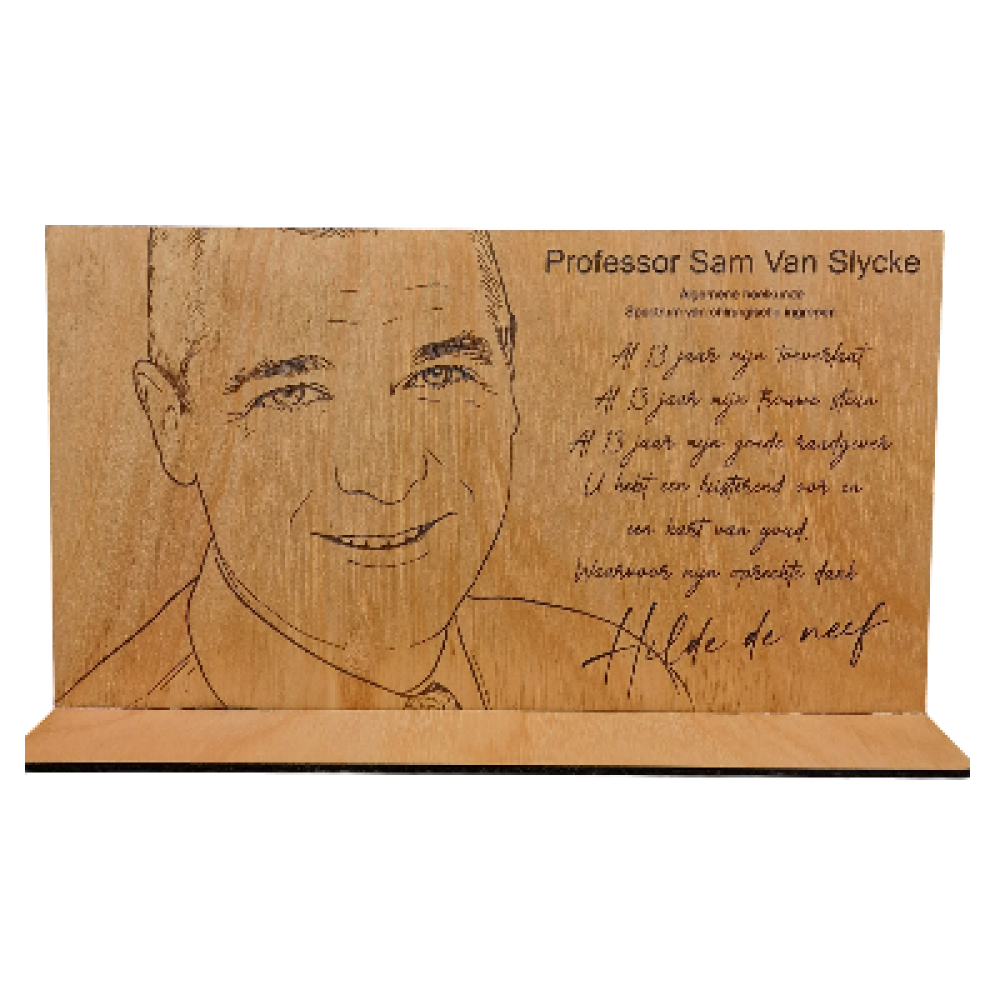 Professor Sam Van Slycke
Algemene heelkunde
Spectrum van chirurgische ingrepen
Al 13 jaar mijn toeverlaat
Al 13 jaar mijn trouwe steun
Al 13 jaar mijn goede raadgever
U hebt een luisterend oor en
een hart van goud.
Waarvoor mijn oprechte dank
Hilde de neef